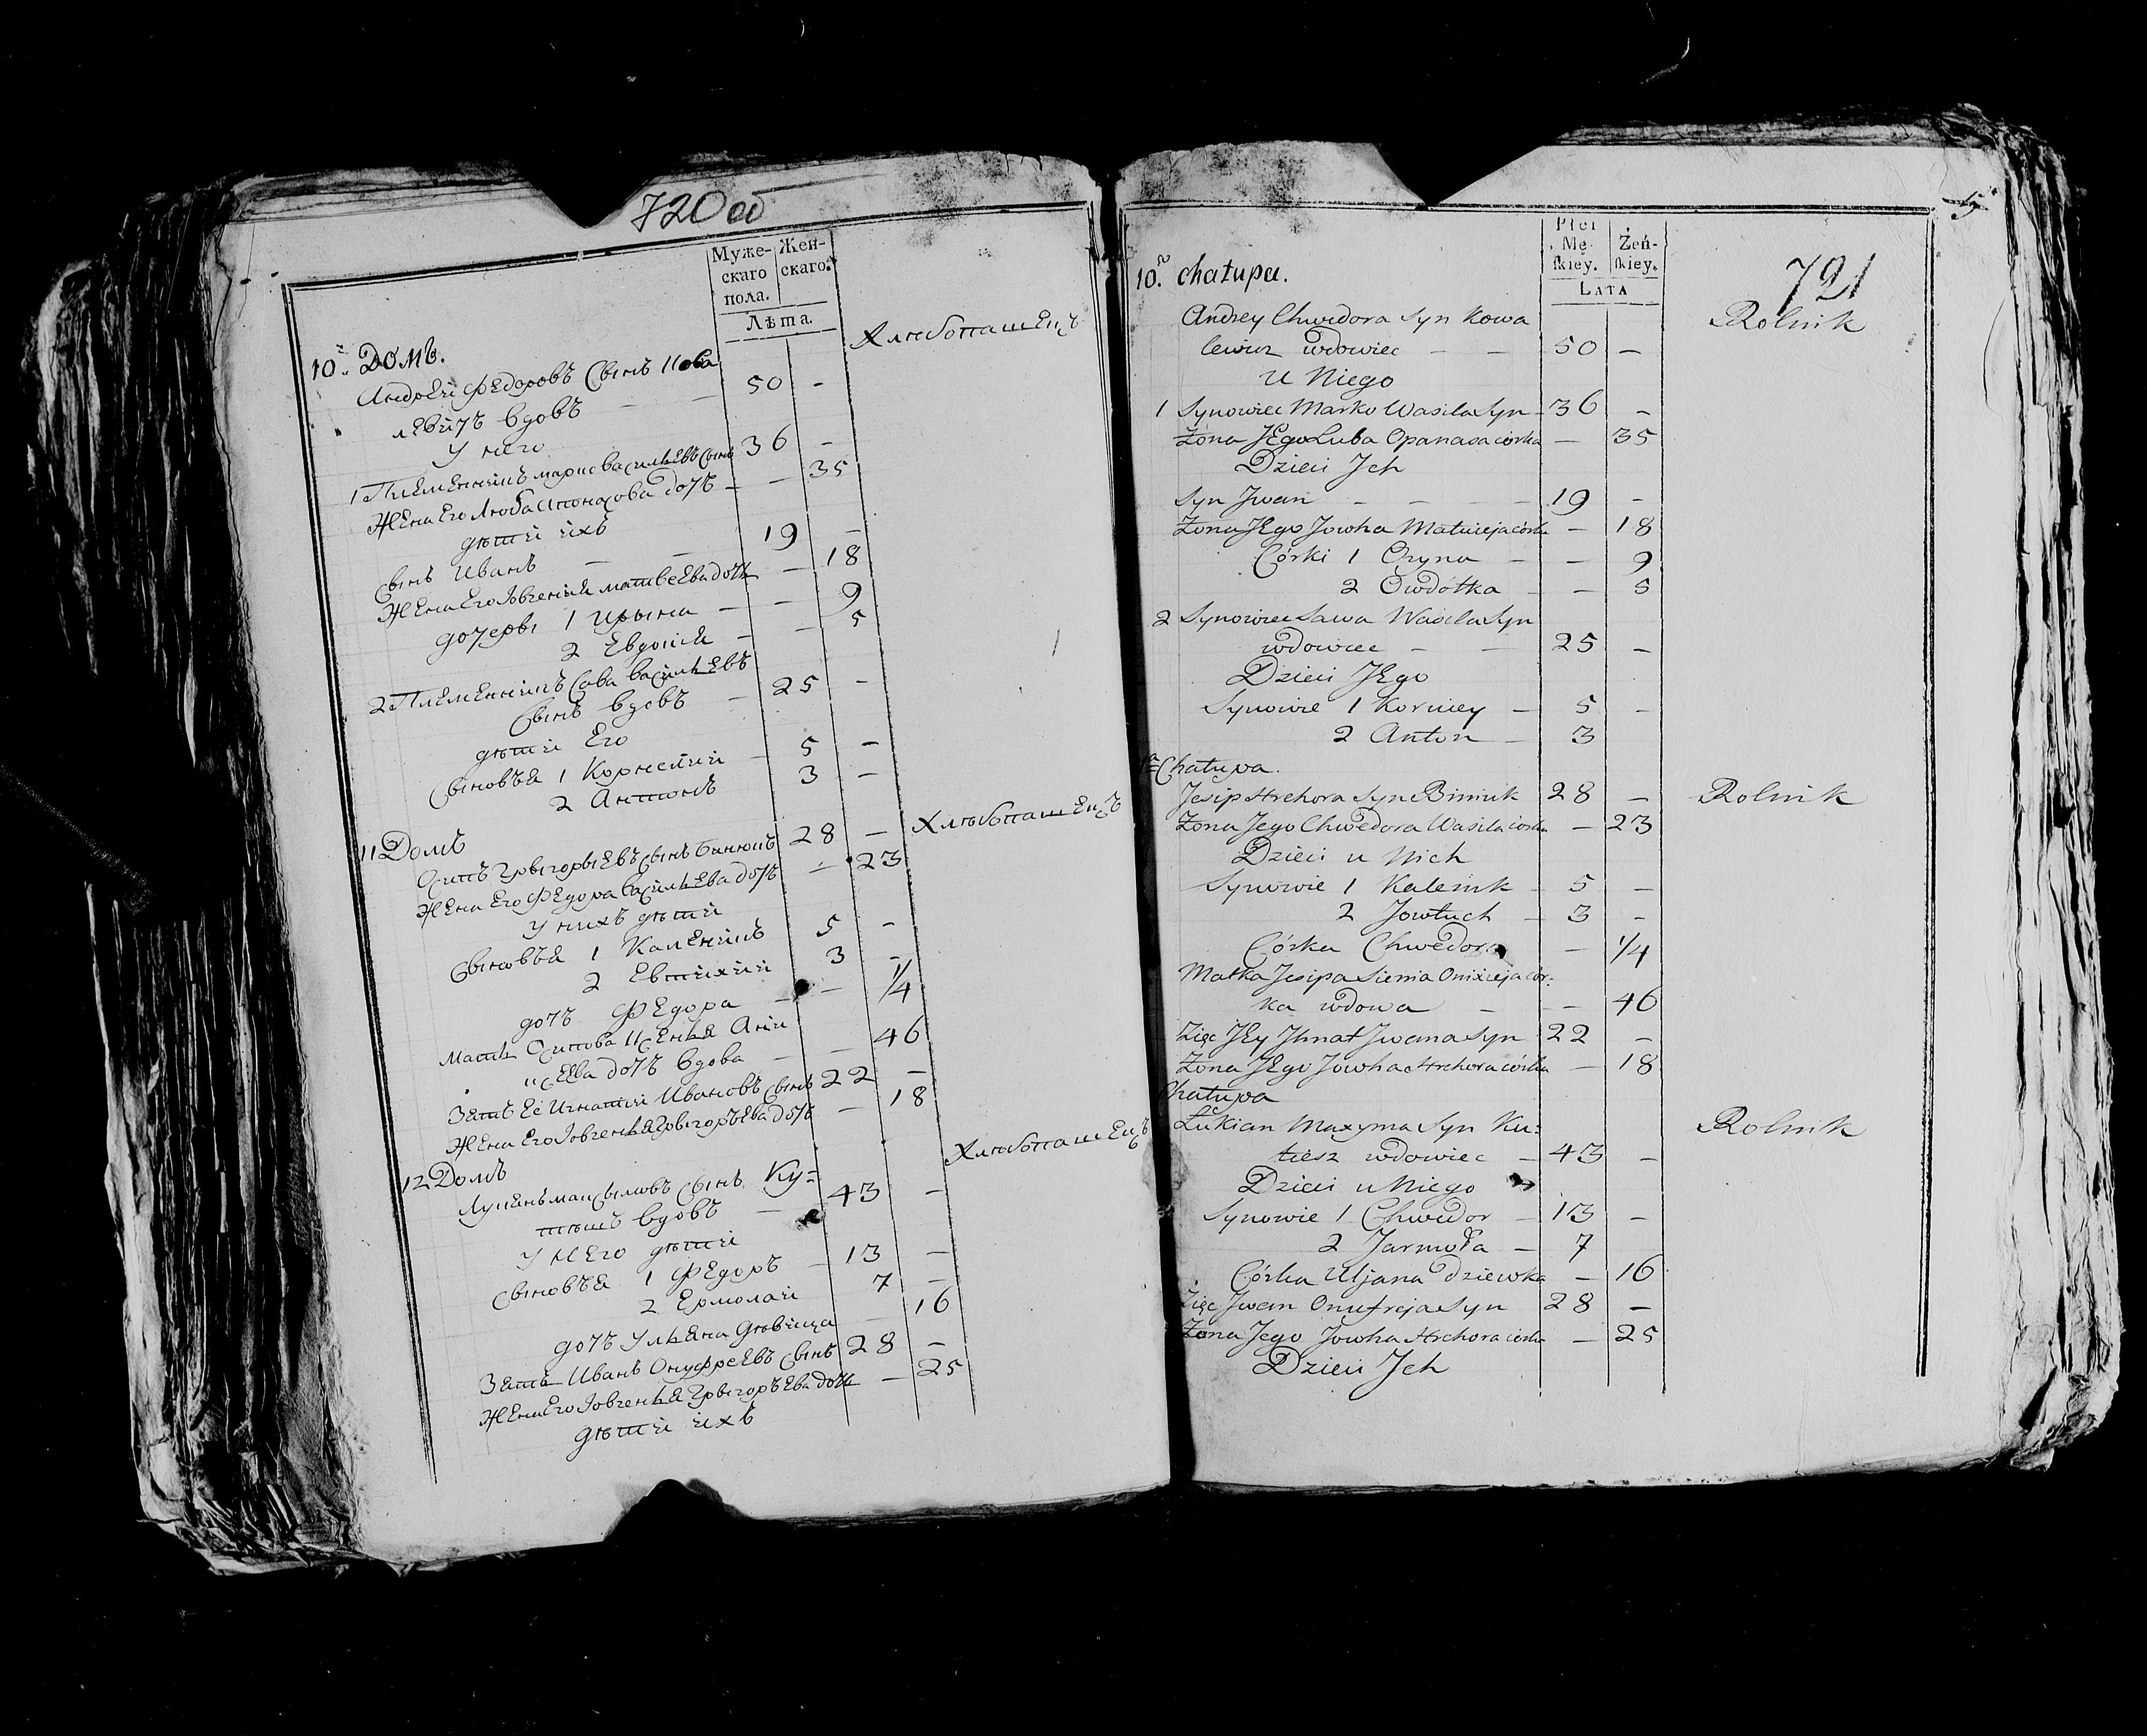 720 об
Муже-
скаго
пола.
Жен-
скаго.
Лѣта
10. Домъ.
Андрей Федоровъ Сынъ Кова
Хлѣбопашецъ
левичъ вдовъ — — 50 -
У него
1 Племенникъ марко васильевъ Сынъ 36 -
Жена Его Люба Апонасова дочь — — 35
дѣти ихъ
Сынъ Иванъ — — 19 —
Жена Его Iовгениа матвеева дочь — 18
дочери 1 Ирына — — 9
2 Евдокиа — — 5
2 Племенникъ Сава васильевъ
Сынъ вдовъ — 25 -
дѣти Его
Сыновъя 1 Корнейий 5 —
2 Антонъ 3 —
11 Домъ
Осипъ Грыгорыевъ Сынъ Бинюкъ 28 — Хлѣбопашецъ
Жена Его Федора васильева дочь — 23
у нихъ дѣти
Сыновъя 1 Каленикъ 5 -
2 Евтихий 3 -
дочь Федора — — 1/4
мать Осипова Ксеньа Ани
сеева дочь вдова — — 46
Зять Её Игнатий Ивановъ Сынъ 22 —
Жена Его Iовгеньа Грыгоръева дочь — 18
12 Домъ
Лукянъ максымовъ Сынъ Ку=
Хлѣбопашецъ
тѣшъ вдовъ — 43 -
у него дѣти
Сыновъя 1 Федоръ — 13 —
2 Ермолай 7 —
дочь Ульяна дѣвица 16
Зять Иванъ Онуфреевъ Сынъ 28 —
Жена Его Iовгенья Грыгоръева дочь — 25
дѣти ихъ
5
Płci
Mę-
skiey.
Żeń-
skiey.
LATA
721
10. chałupa.
Andrey Chwedora Syn Kowa
Rolnik
lewicz wdowiec — — 50 —
U Niego
1 Synowiec Marko Wasila Syn 36 —
Żona JEgo Luba Opanasa córka — 35
Dzieci Jch
Syn Jwan — — — 19 -
Żona JEgo Jowha Matwieja córka — 18
Córki 1 Oryna — — 9
2 Owdotka — — 5
2 Synowiec Sawa Wasila Syn
wdowiec — — 25 —
Dzieci JEgo
Synowie 1 Korniey — 5 -
2 Anton — 3
Chałupa.
Jesip Hrehora Syn Biniuk 28 — Rolnik
Żona Jego Chwedora Wasila córka — 23
Dzieci u Nich
Synowie 1 Kalenik — 5 —
2 Jowtuch — 3 -
Córka Chwedora — 1/4
Matka Jesipa Sienia Onixieja cór-
ka wdowa — — 46
Zięc JEy Jhnat Jwana Syn 22 —
Żona JEgo Jowha Hrehora córka — 18
Chałupa
Łukian Maxyma Syn Ku=
Rolnik
tiesz wdowiec — 43 —
Dzieci u Niego
Synowie 1 Chwedor — 13 —
2 Jarmoła — 7
Córka Uljana dziewka — 16
Zięc Jwan Onufreja Syn 28 —
Żona Jego Jowha Hrehora córka — 25
Dzieci Jch